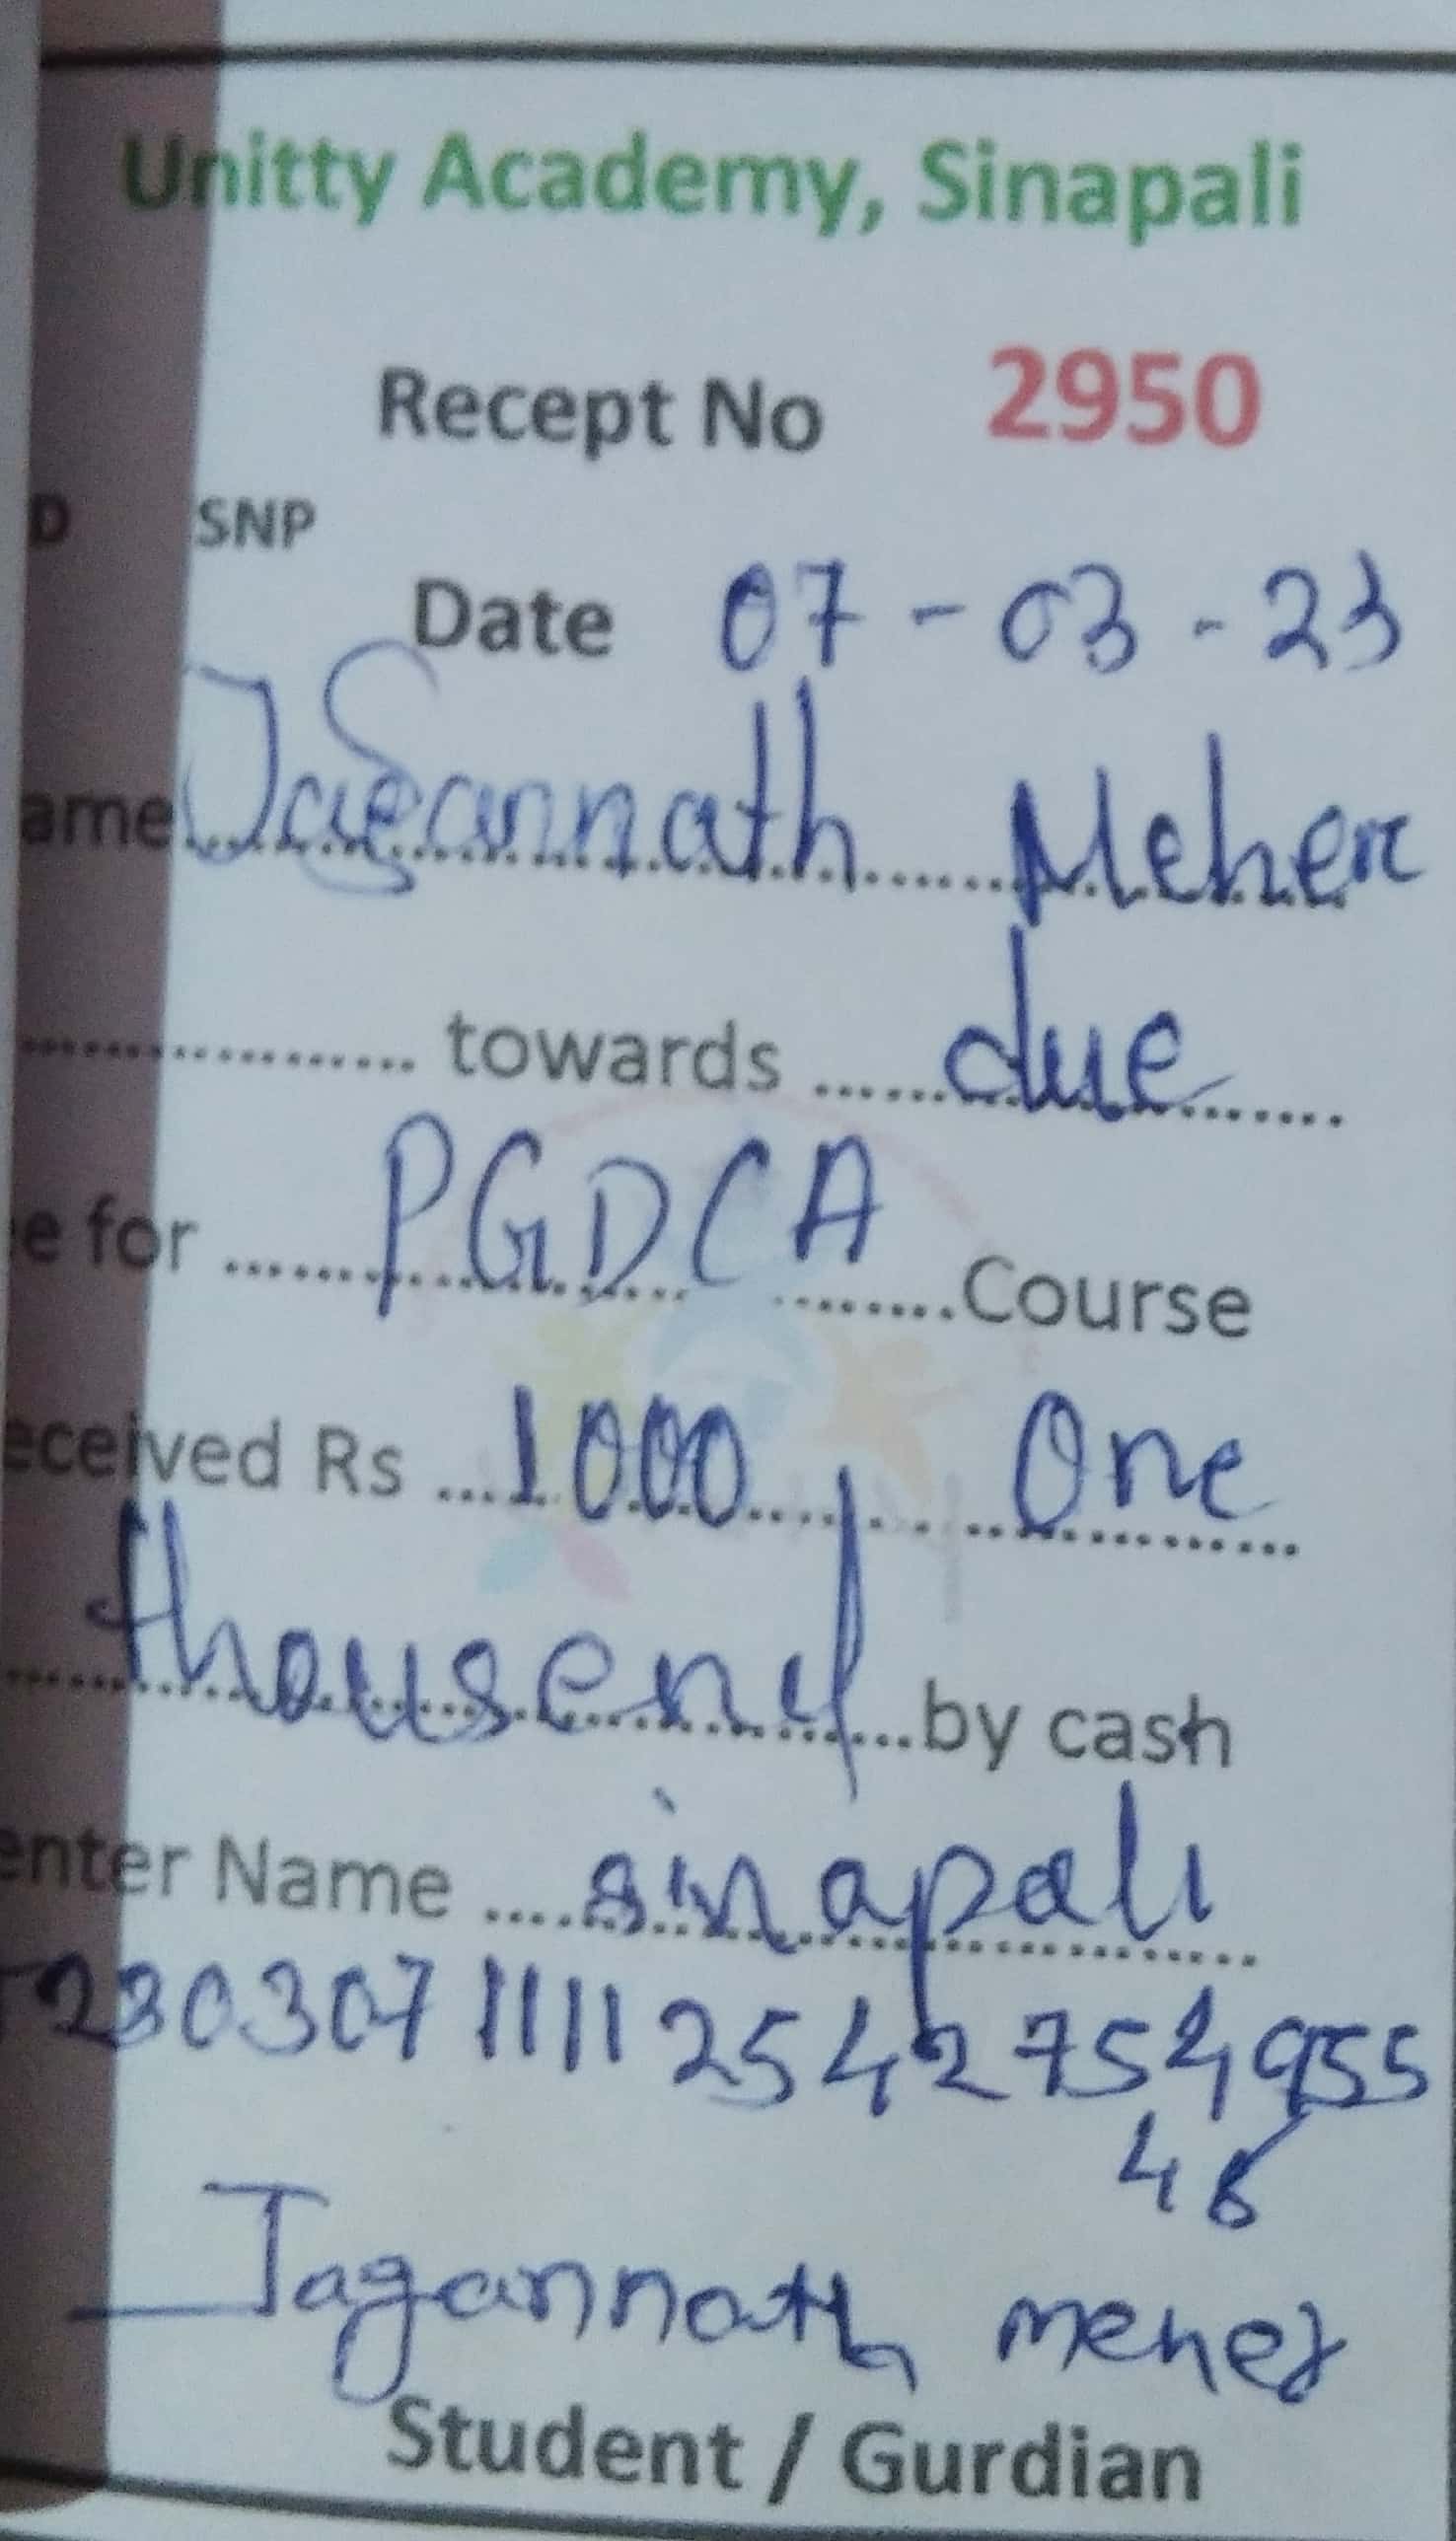 Unitty Academy, Sinapali
Recept No 2950
D SNP
Date 07-03-23
ame Jagannath Meher
towards due
e for PGDCA Course
eceived Rs 1000 One
thousend by cash
enter Name sinapali
230307 11111 25 42 75 4955
46
Jagannath meher
Student / Gurdian